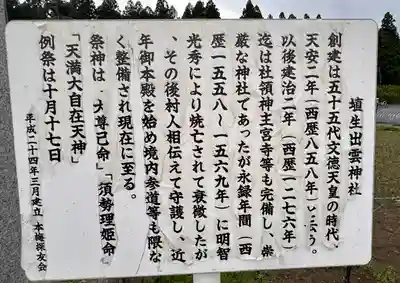 埴生出雲神社
創建は五十五代文徳天皇の時代
天安二年(西歴八五八年)と云う。
以後建治二年(西歴一二七六年)
迄は社領神主宮寺等も完備し、崇
厳な神社であったが永録年間(西
歴一五五八〜一五六九年)に明智
光秀により焼亡されて衰微したが
、その後村人相伝えて守護し、近
年御本殿を始め境内参道等も限な
く整備され現在に至る。
祭神は「大尊己命」「須勢理姫命」
「天満大自在天神」
例祭は十月十七日
平成二十四年三月建立 本梅振友会